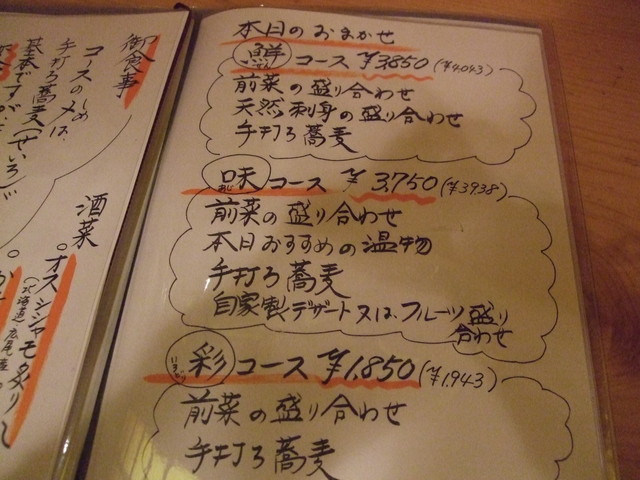 本日のおまかせ
鮮コース ¥3850(¥4,043)
前菜の盛り合わせ
天然刺身の盛り合わせ
手打ち蕎麦
味コース ¥3,750(¥3938)
あじ
前菜の盛り合わせ
本日おすすめの温物
手打ち蕎麦
自家製デザート又は、フルーツ盛り
合わせ
彩コース ¥1,850(¥1,943)
いろどり
前菜の盛り合わせ
手打ち蕎麦
御食事
コースの〆は、
手打ち蕎麦(せいろ)が
基本ですが、
酒菜
○オスシシャモ炙り
(北海道)広尾産